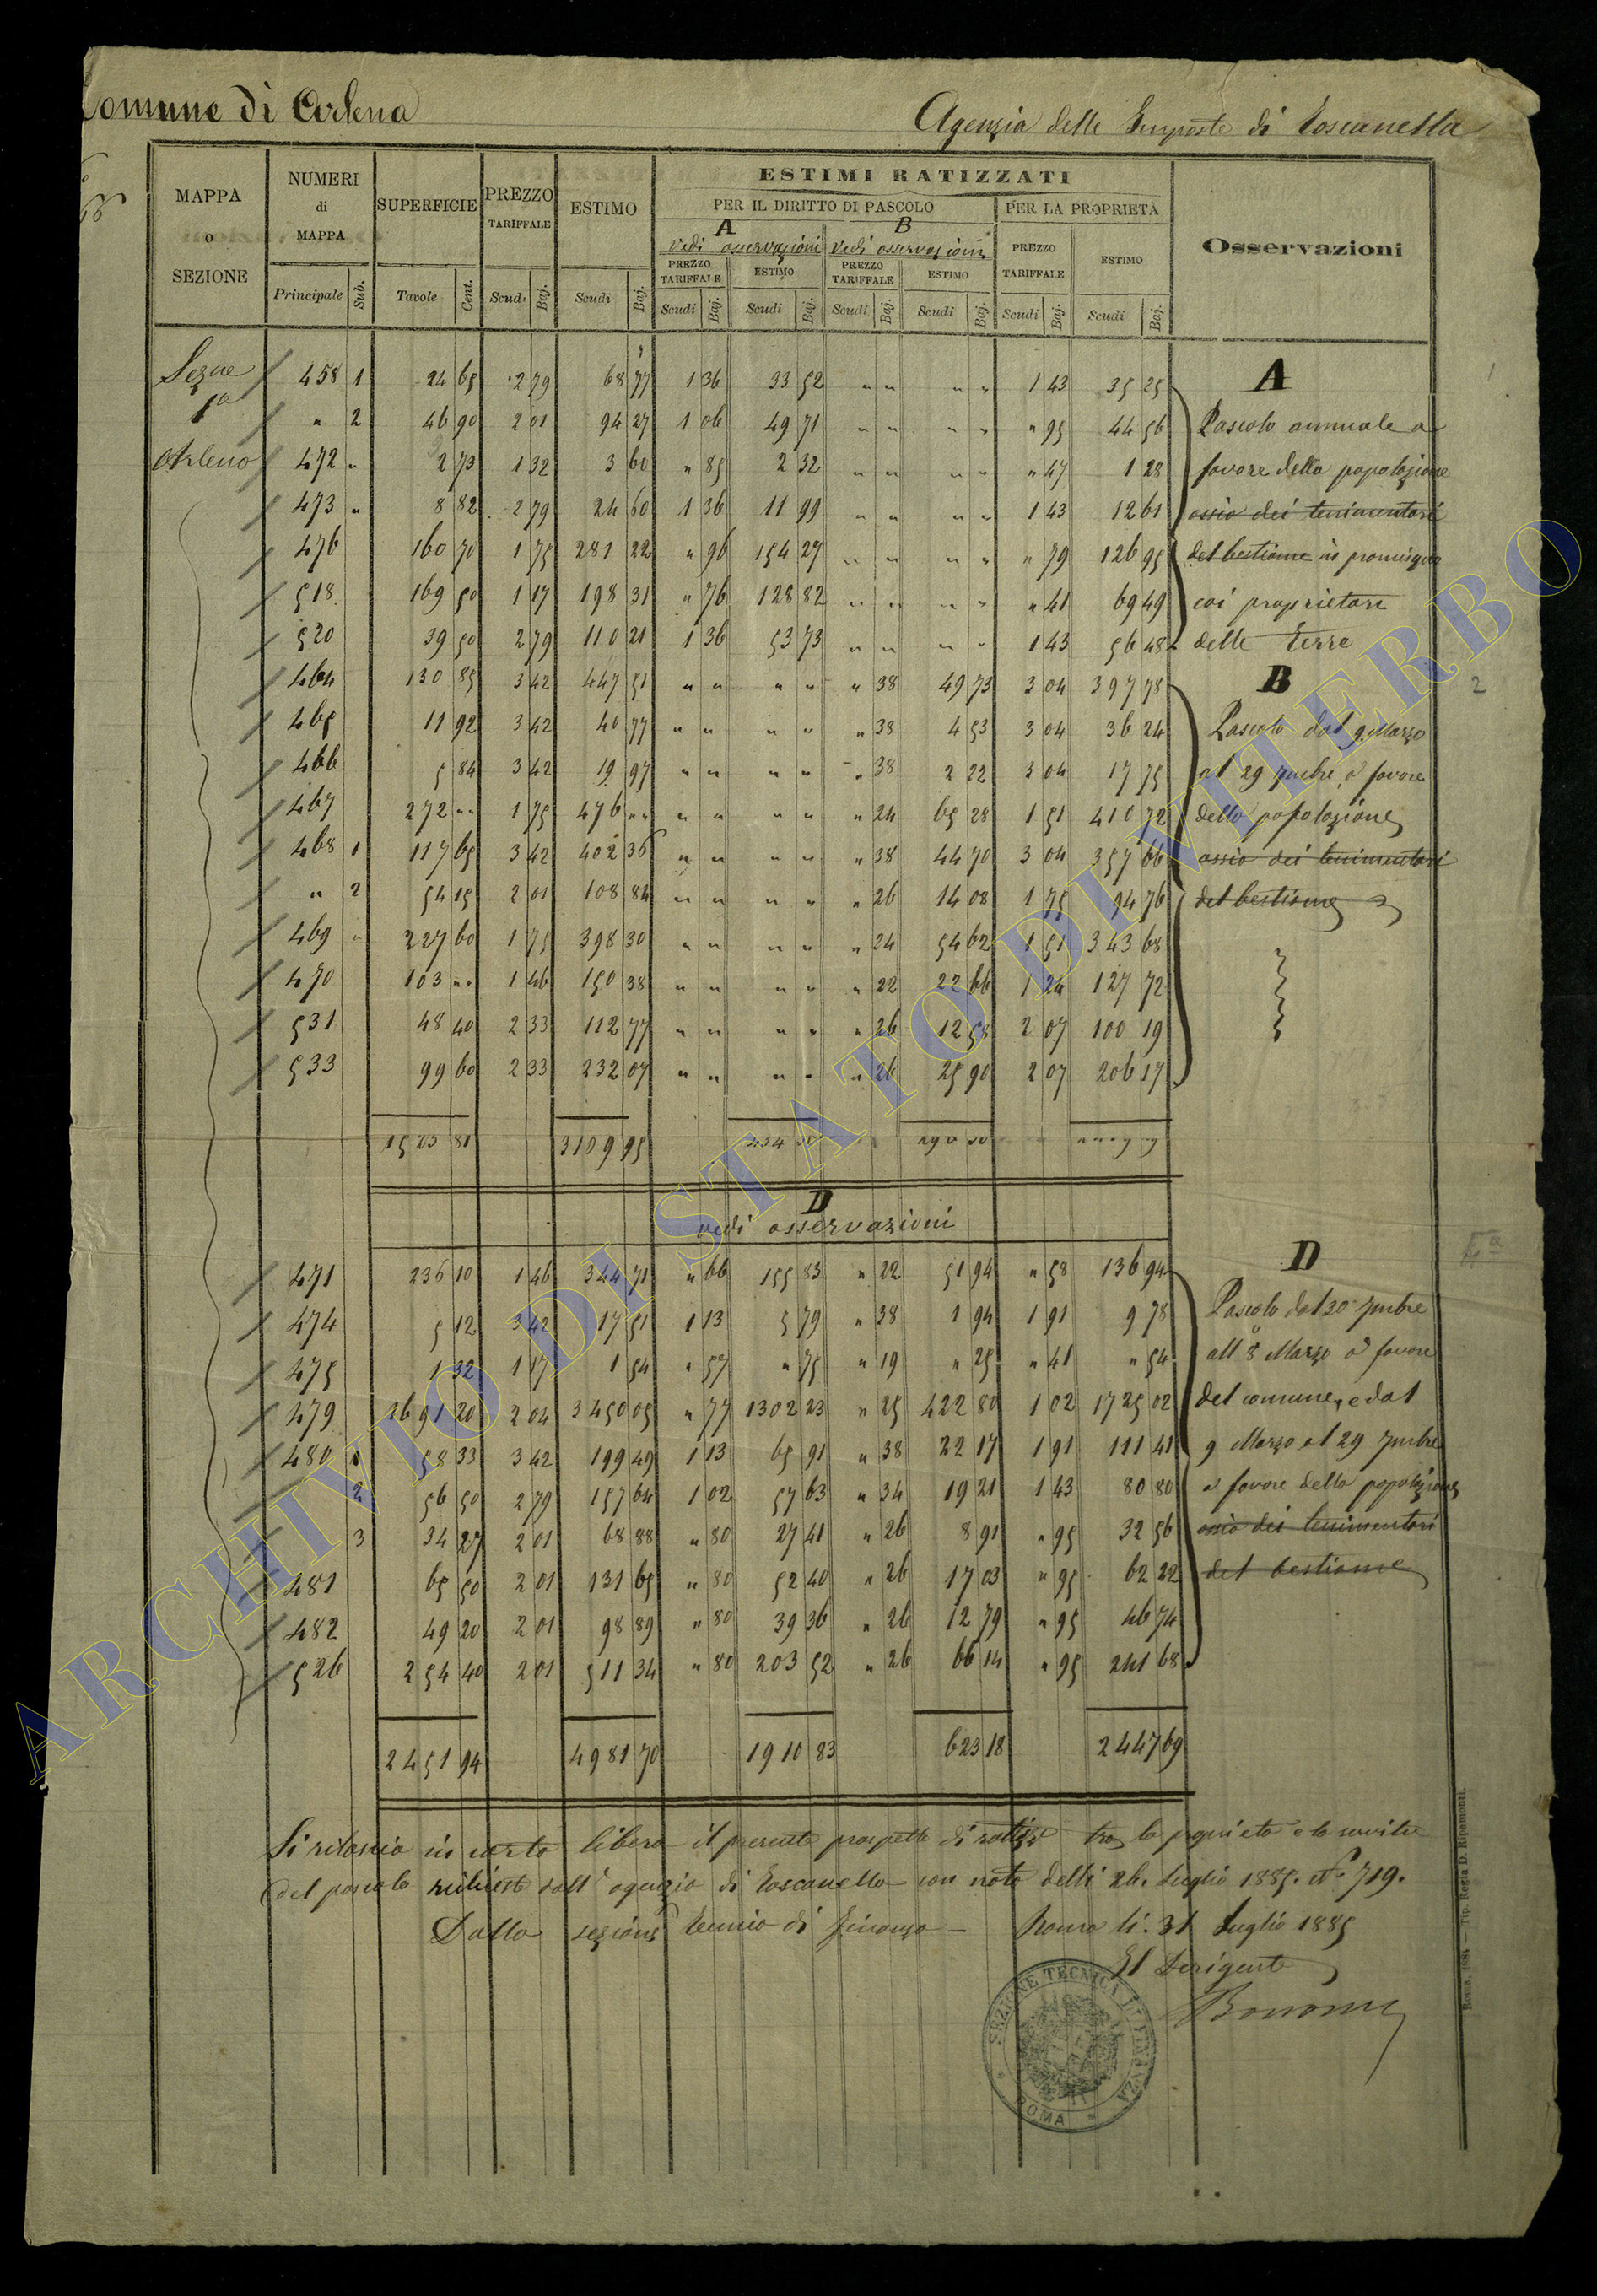 Comune di Arlena
Agenzia delle Imposte di Toscanella
MAPPA o SEZIONE
NUMERI di MAPPA
SUPERFICIE
PREZZO TARIFFALE
ESTIMO
ESTIMI RATIZZATI
PER IL DIRITTO DI PASCOLO
PER LA PROPRIETÀ
Osservazioni
A vedi osservazioni
B vedi osservazioni
PREZZO TARIFFALE ESTIMO PREZZO TARIFFALE ESTIMO PREZZO TARIFFALE ESTIMO
Principale Sub. Tavole Cent. Scudi Baj. Scudi Baj. Scudi Baj. Scudi Baj. Scudi Baj. Scudi Baj. Scudi Baj. Scudi Baj.
Sezne 458 1 24 65 2 79 68 77 1 36 33 52 " " " " 1 43 35 25 A
1a " 2 46 90 2 01 94 27 1 06 49 71 " " " " " 95 44 56 Pascolo annuale a
Arleno 472 " 2 73 1 32 3 60 " 85 2 32 " " " " " 47 1 28 favore della popolazione
473 " 8 82 2 79 24 60 1 36 11 99 " " " " 1 43 12 61 ossia dei tenimentari
476 160 70 1 75 281 22 " 96 154 27 " " " " " 79 126 95 del bestiame in promiscuo
518 169 50 1 17 198 31 " 76 128 82 " " " " " 41 69 49 coi proprietari
520 39 50 2 79 110 21 1 36 53 73 " " " " 1 43 56 48 delle terre
464 130 85 3 42 447 51 " " " " " 38 49 73 3 04 397 78 B
2
465 11 92 3 42 40 77 " " " " " 38 4 53 3 04 36 24 Pascolo dal 9 Marzo
466 5 84 3 42 19 97 " " " " " 38 2 22 3 04 17 75 al 29 7mbre a favore
467 272 " " 1 75 476 " " " " " " " 24 65 28 1 51 410 72 della popolazione
468 1 117 65 3 42 402 36 " " " " " 38 44 70 3 04 357 66 ossia dei tenimentari
" 2 54 15 2 01 108 84 " " " " " 26 14 08 1 75 94 76 del bestiame
469 " 227 60 1 75 398 30 " " " " " 24 54 62 1 51 343 68
470 103 " " 1 46 150 38 " " " " " 22 22 66 1 24 127 72
531 48 40 2 33 112 77 " " " " " 26 12 58 2 07 100 19
533 99 60 2 33 232 07 " " " " " 26 25 90 2 07 206 17
1523 81 3109 95
D
vedi osservazioni
D
471 236 10 1 46 344 71 " 66 155 83 " 22 51 94 " 58 136 94
474 5 12 3 42 17 51 1 13 5 79 " 38 1 94 1 91 9 78 Pascolo dal 30 7mbre
475 1 32 1 17 1 54 " 57 " 75 " 19 " 25 " 41 " 54 all' 8 Marzo a favore
479 1691 20 2 04 3450 05 " 77 1302 23 " 25 422 80 1 02 1725 02 del comune, e dal
480 1 58 33 3 42 199 49 1 13 65 91 " 38 22 17 1 91 111 41 9 Marzo al 29 7mbre
2 56 50 2 79 157 64 1 02 57 63 " 34 19 21 1 43 80 80 a favore della popolazione
3 34 27 2 01 68 88 " 80 27 41 " 26 8 91 " 95 32 56 ossia dei tenimentari
481 65 50 2 01 131 65 " 80 52 40 " 26 17 03 " 95 62 22 del bestiame
482 49 20 2 01 98 89 " 80 39 36 " 26 12 79 " 95 46 74
526 254 40 2 01 511 34 " 80 203 52 " 26 66 14 " 95 241 68
2451 94 4981 70 1910 83 623 18 2447 69
Si rilascia in carta libera il presente prospetto di ratizzo tra la proprietà e la servitù
del pascolo richiesto dall' agenzia di Toscanella con nota delli 26. Luglio 1885. N° 719.
Dalla sezione tecnica di finanza - Roma li. 31 Luglio 1885
Il Dirigente
SEZIONE TECNICA DI FINANZA
ROMA
Roma, 1884 — Tip. Regia D. Ripamonti.
ARCHIVIO DI STATO DI VITERBO